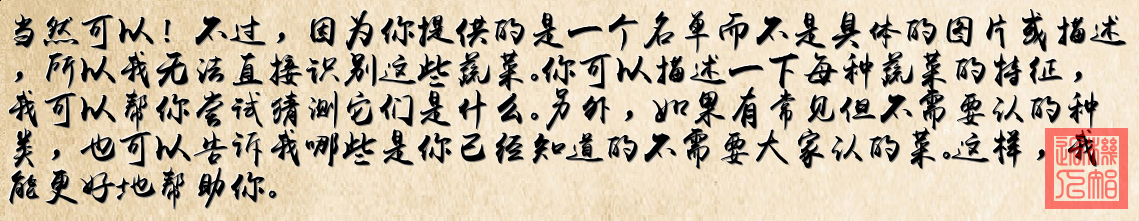 当然可以！不过，因为你提供的是一个名单而不是具体的图片或描述
，所以我无法直接识别这些蔬菜。你可以描述一下每种蔬菜的特征，
我可以帮你尝试猜测它们是什么。另外，如果有常见但不需要认的种
类，也可以告诉我哪些是你已经知道的不需要大家认的菜。这样，我
能更好地帮助你。